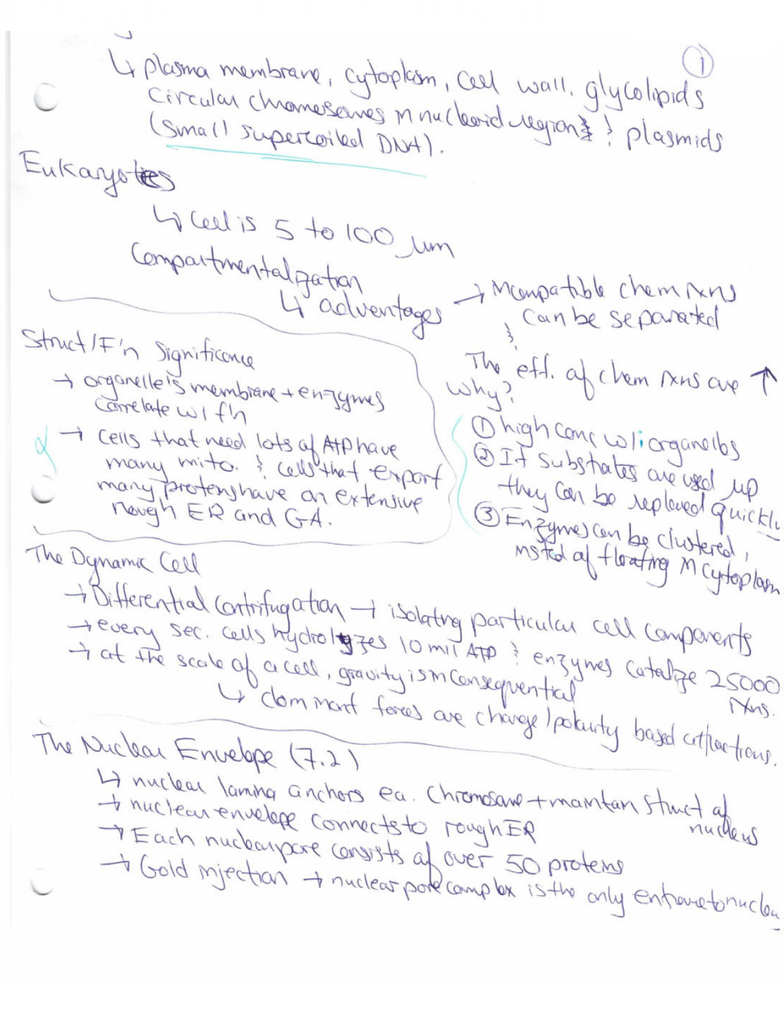 ①
↳ plasma membrane, cytoplasm, cell wall, glycolipids
circular chromosomes in nucleoid region & plasmids
(small supercoiled DNA).
Eukaryotes
↳ Cell is 5 to 100 μm
Compartmentalization
↳ advantages → Incompatible chem rxns
can be separated
&
The eff. of chem rxns are ↑
Why?
① high conc w/i organelles
② If substrates are used up
they can be replaced quickly
③ Enzymes can be clustered,
insted of floating in cytoplasm
Struct/F'n Significance
→ organelle's membrane + enzymes
correlate w/ f'n
→ cells that need lots of ATP have
many mito. & cells that export
many proteins have an extensive
rough ER and GA.
The Dynamic Cell
→ Differential Centrifugation → isolating particular cell components
→ every sec. cells hydrolyzes 10 mil ATP & enzymes catalize 25000
rxns.
→ at the scale of a cell, gravity is inconsequential
↳ dominant forces are charge/polarity based attractions.
The Nuclear Envelope (7.2)
↳ nuclear lamina anchors ea. chromosome + maintain struct of
nucleus
→ nuclear envelope connects to rough ER
→ Each nuclear pore consists of over 50 proteins
→ Gold injection → nuclear pore complex is the only entrance to nucleu